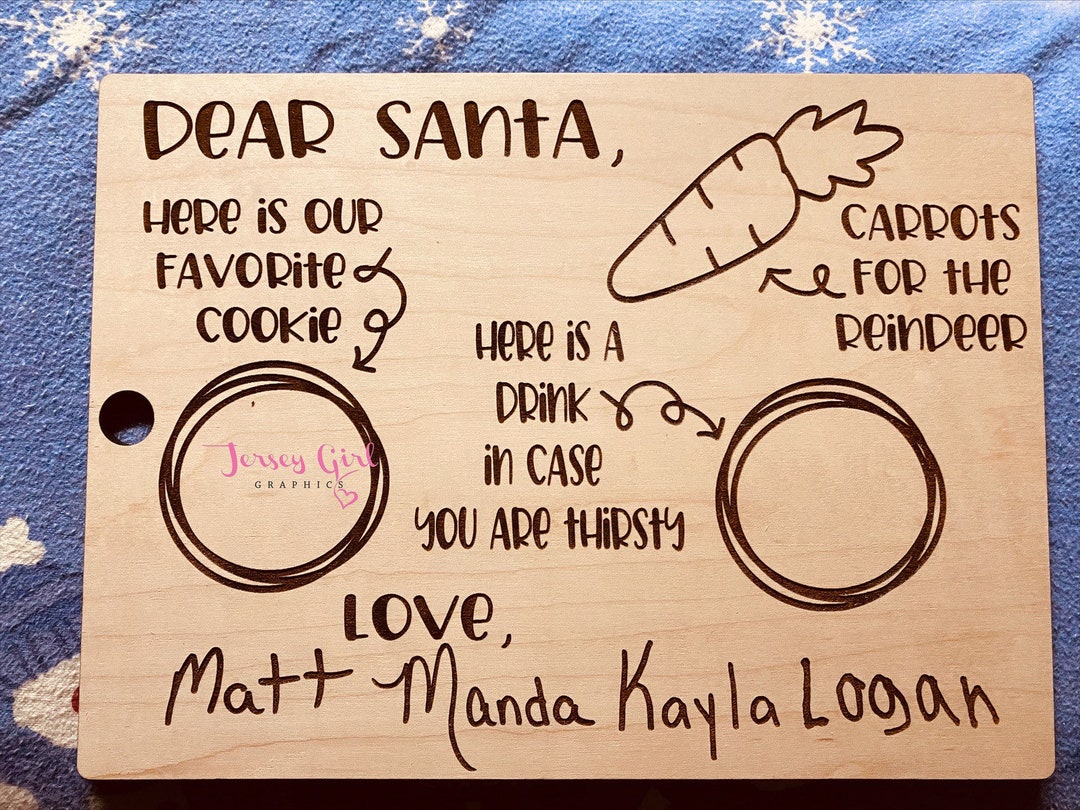 DEAR SANTA,
HERE IS OUR
FAVORITE
COOKIE
CARROTS
FOR THE
REINDEER
HERE IS A
DRINK
IN CASE
YOU ARE THIRSTY
Jersey Girl
GRAPHICS
LOVE,
Matt Manda Kayla Logan